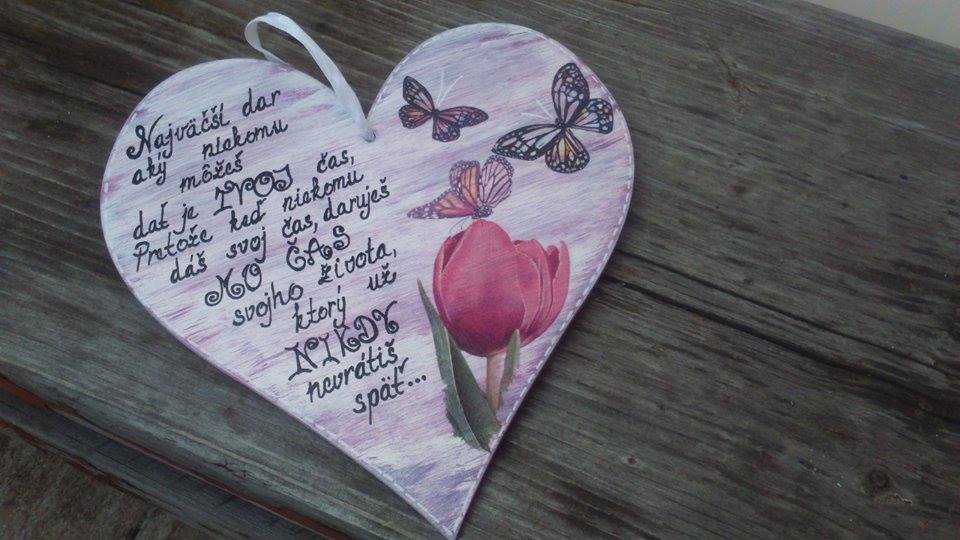 Najväčší dar
aký niekomu
môžeš
dať je TVOJ čas,
Pretože keď niekomu
dáš svoj čas, daruješ
MO ČAS
svojho života,
ktorý už
NIKDY
nevrátiš
späť...